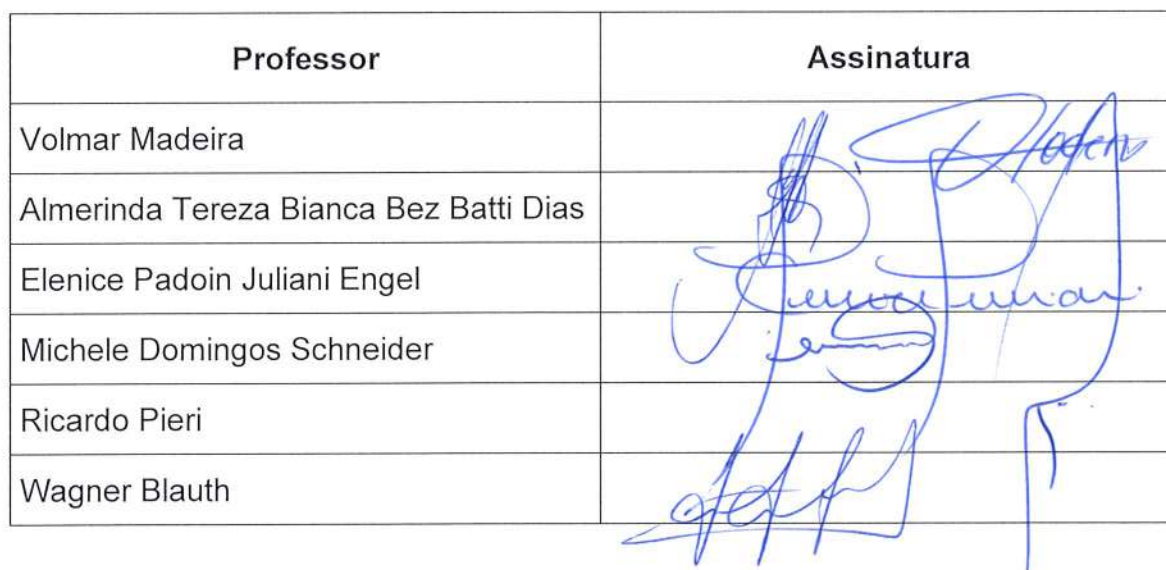 Professor Assinatura
Volmar Madeira
Almerinda Tereza Bianca Bez Batti Dias
Elenice Padoin Juliani Engel
Michele Domingos Schneider
Ricardo Pieri
Wagner Blauth